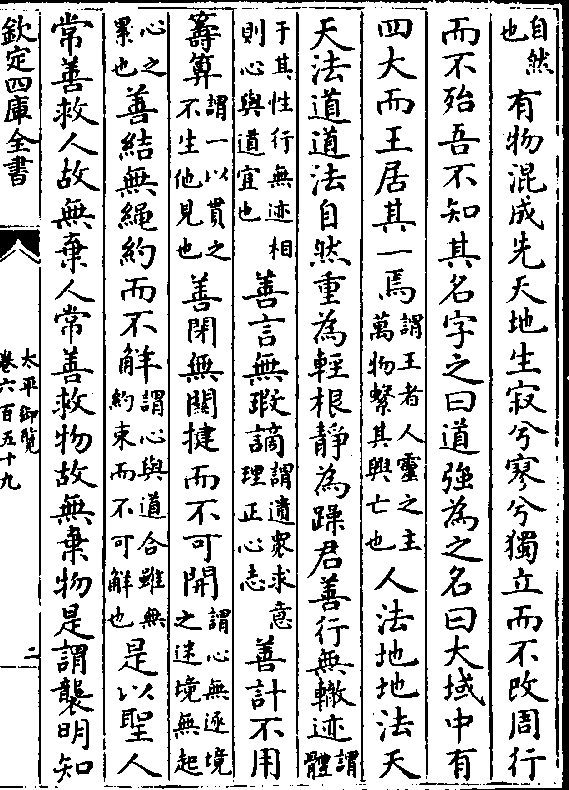 自然也有物混成先天地生寂兮寥兮獨立而不改周行
而不殆吾不知其名字之曰道強為之名曰大域中有
四大而王居其一焉謂王者人靈之主萬物繫其興亡也人法地地法天
天法道道法自然重為輕根靜為躁君善行無轍迹謂體
于其性行無迹相則心與道宜也善言無瑕謫謂遺衆求意理正心志善計不用
籌算謂一以貫之不生他見也善閉無關揵而不可開謂心無逐境之迷境無起
心之累也善結無繩約而不解謂心與道合雖無約束而不可解也是以聖人
常善救人故無棄人常善救物故無棄物是謂襲明知
欽定四庫全書
太平御覽
卷六百五十九
二